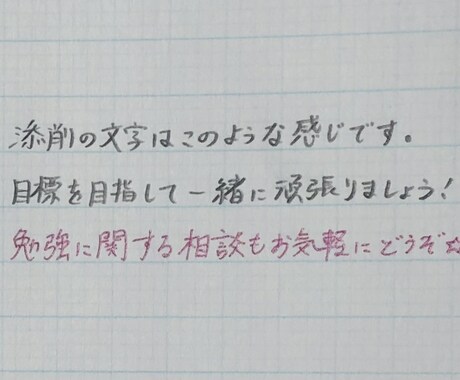 添削の文字はこのような感じです。
目標を目指して一緒に頑張りましょう!
勉強に関する相談もお気軽にどうぞ☆